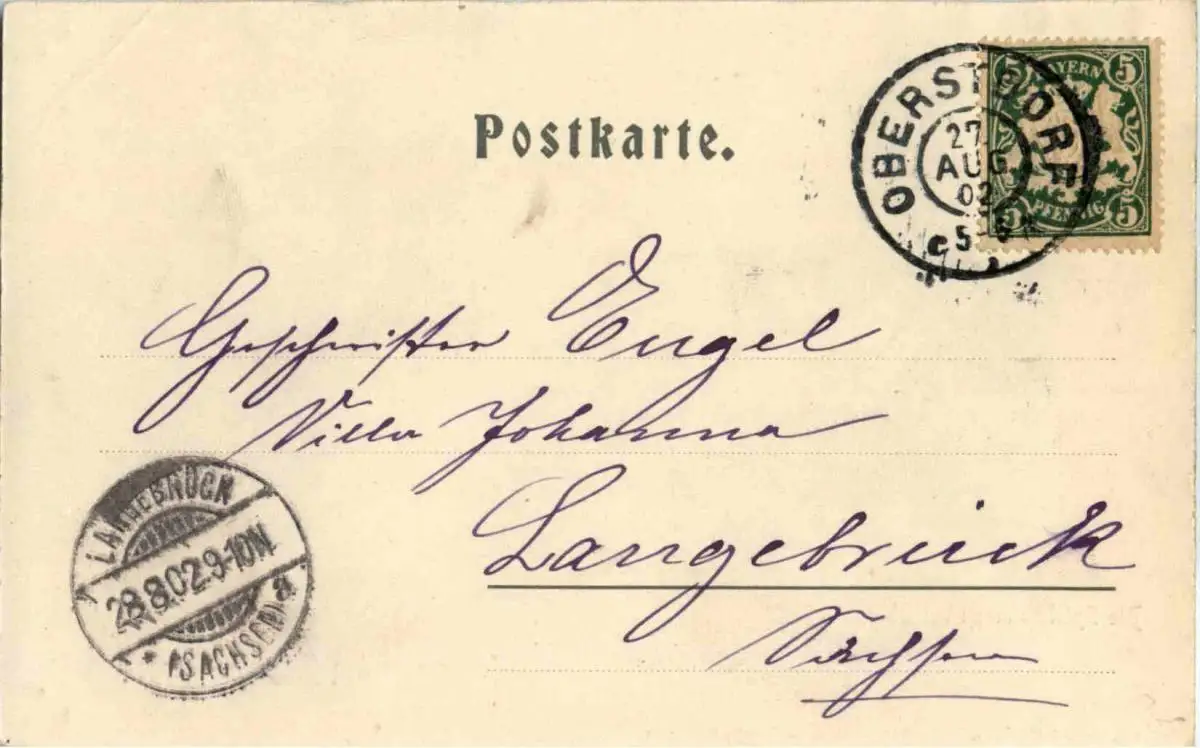 Postkarte.
5 BAYERN 5
5 PFENNIG 5
OBERSTDORF
27.
AUG
02
5-6
Geschwister Engel
Villa Johanna
Langebrück
Sachsen
LANGEBRÜCK
28.8.02.9-10N
* (SACHSEN) a